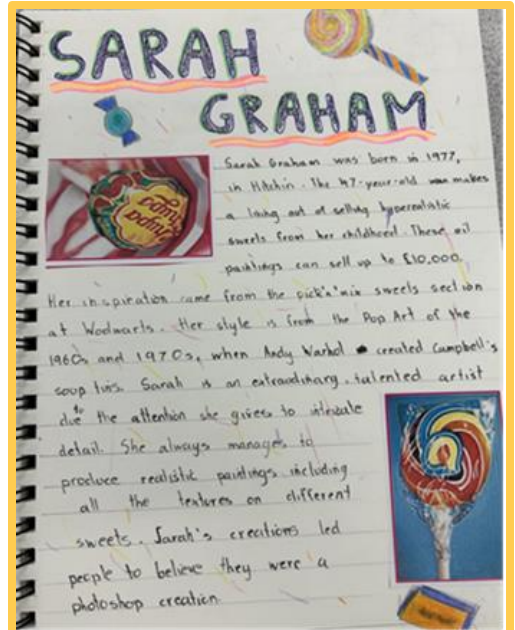 SARAH
GRAHAM
Sarah Graham was born in 1977,
in Hitchin. The 47-year-old makes
a living out of selling hyperealistic
sweets from her childhood. These oil
paintings can sell up to £10,000.
Her inspiration came from the pick'n'mix sweets section
at Woolwarts. Her style is from the Pop Art of the
1960s and 1970s, when Andy Warhol created Campbell's
soup tins. Sarah is an extraodinary, talented artist
due to the attention she gives to intricate
detail. She always manages to
produce realistic paintings including
all the textures on different
sweets. Sarah's creations led
people to believe they were a
photoshop creation.
Chupa
Chups